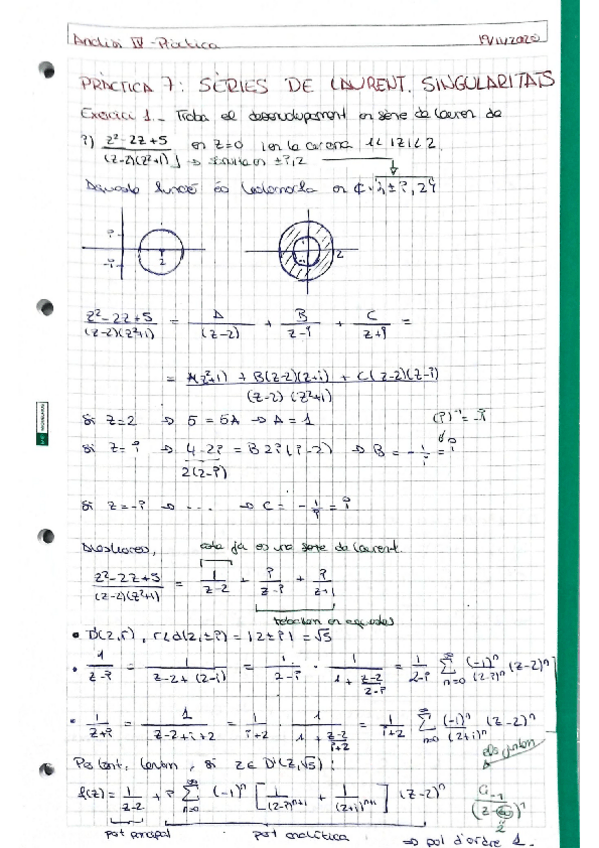 Anàlisi IV - Pràctica 19/11/2020
PRÀCTICA 7: SÈRIES DE LAURENT. SINGULARITATS
Exercici 1.- Troba el desenvolupament en sèrie de Lauren de
i) z²-2z+5 / (z-2)(z²+1) en z=0 i en la corona 1<|z|<2.
Aquesta funció és
i
-i
2
2
z²-2z+5 / (z-2)(z²+1) = A/(z-2) + B/z-i + C/z+i =
= A(z²+1) + B(z-2)(z+i) + C(z-2)(z-i) / (z-2)(z²+1)
Si z=2 ⇒ 5=5A ⇒ A=1 (i)⁻¹ = -i
Si z=i ⇒ 4-2i = B2i(i-2) ⇒ B = -1/i = i
2(2-i)
Si z=-i ⇒ ... ⇒ C =
Aleshores, esta ja es una serie de Laurent.
z²-2z+5 / (z-2)(z²+1) = 1/z-2 + i/z-i + i/z+i
treballem en aquestes
• D'(2,r), r<d(2,±i) = |2±i| = √5
• 1/z-i = 1/z-2+(2-i) = 1/2-i · 1/1+z-2/2-i = 1/2-i Σ n=0 ∞ (-1)ⁿ/(2-i)ⁿ (z-2)ⁿ
• 1/z+i = 1/z-2+i+2 = 1/i+2 · 1/1+z-2/i+2 = 1/i+2 Σ n=0 ∞ (-1)ⁿ/(2+i)ⁿ (z-2)ⁿ
els juntem
Per tant, , si z∈D'(2,√5):
f(z) = 1/z-2 + i Σ n=0 ∞ (-1)ⁿ [1/(2-i)ⁿ⁺¹ + 1/(2+i)ⁿ⁺¹] (z-2)ⁿ
part principal part analítica ⇒ pol d'ordre 1.